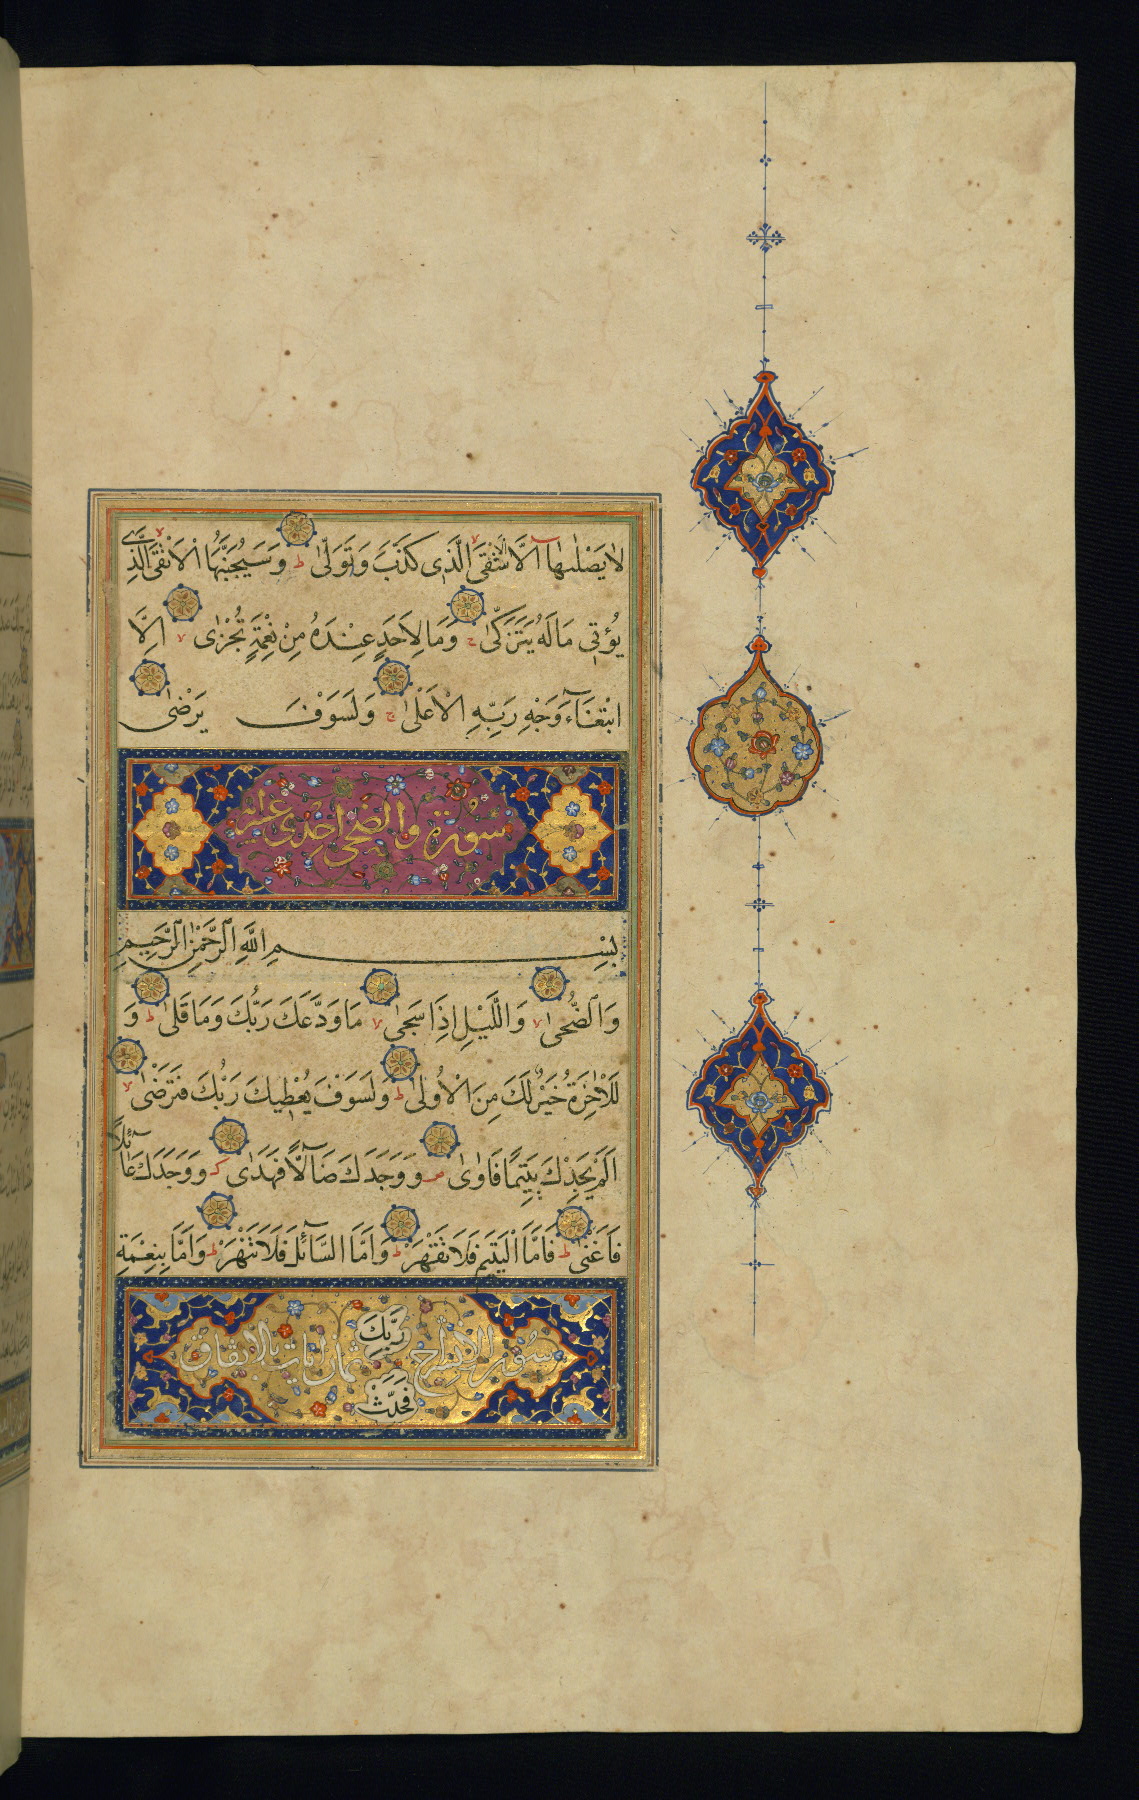 لَا يَصْلٰىهَا اِلَّا الْاَشْقَى الَّذِى كَذَّبَ وَتَوَلّٰى ط وَسَيُجَنَّبُهَا الْاَتْقَى لا الَّذِى
يُؤْتِى مَالَهُ يَتَزَكّٰى ج وَمَا لِاَحَدٍ عِنْدَهُ مِنْ نِعْمَةٍ تُجْزٰى لا اِلَّا
ابْتِغَآءَ وَجْهِ رَبِّهِ الْاَعْلٰى ج وَلَسَوْفَ يَرْضٰى
سورة والضحى احدى عشر
بِسْمِ اللَّهِ الرَّحْمٰنِ الرَّحِيمِ
وَالضُّحٰى لا وَالَّيْلِ اِذَا سَجٰى لا مَا وَدَّعَكَ رَبُّكَ وَمَا قَلٰى ط وَ
لَلْاٰخِرَةُ خَيْرٌ لَكَ مِنَ الْاُولٰى ط وَلَسَوْفَ يُعْطِيكَ رَبُّكَ فَتَرْضٰى لا
اَلَمْ يَجِدْكَ يَتِيمًا فَاٰوٰى ص وَوَجَدَكَ ضَآلًّا فَهَدٰى ص وَوَجَدَكَ عَآئِلًا
فَاَغْنٰى ط فَاَمَّا الْيَتِيمَ فَلَا تَقْهَرْ ط وَاَمَّا السَّآئِلَ فَلَا تَنْهَرْ ط وَاَمَّا بِنِعْمَةِ
رَبِّكَ
سورة الانشراح ثمان ايات بالاتفاق
فَحَدِّثْ